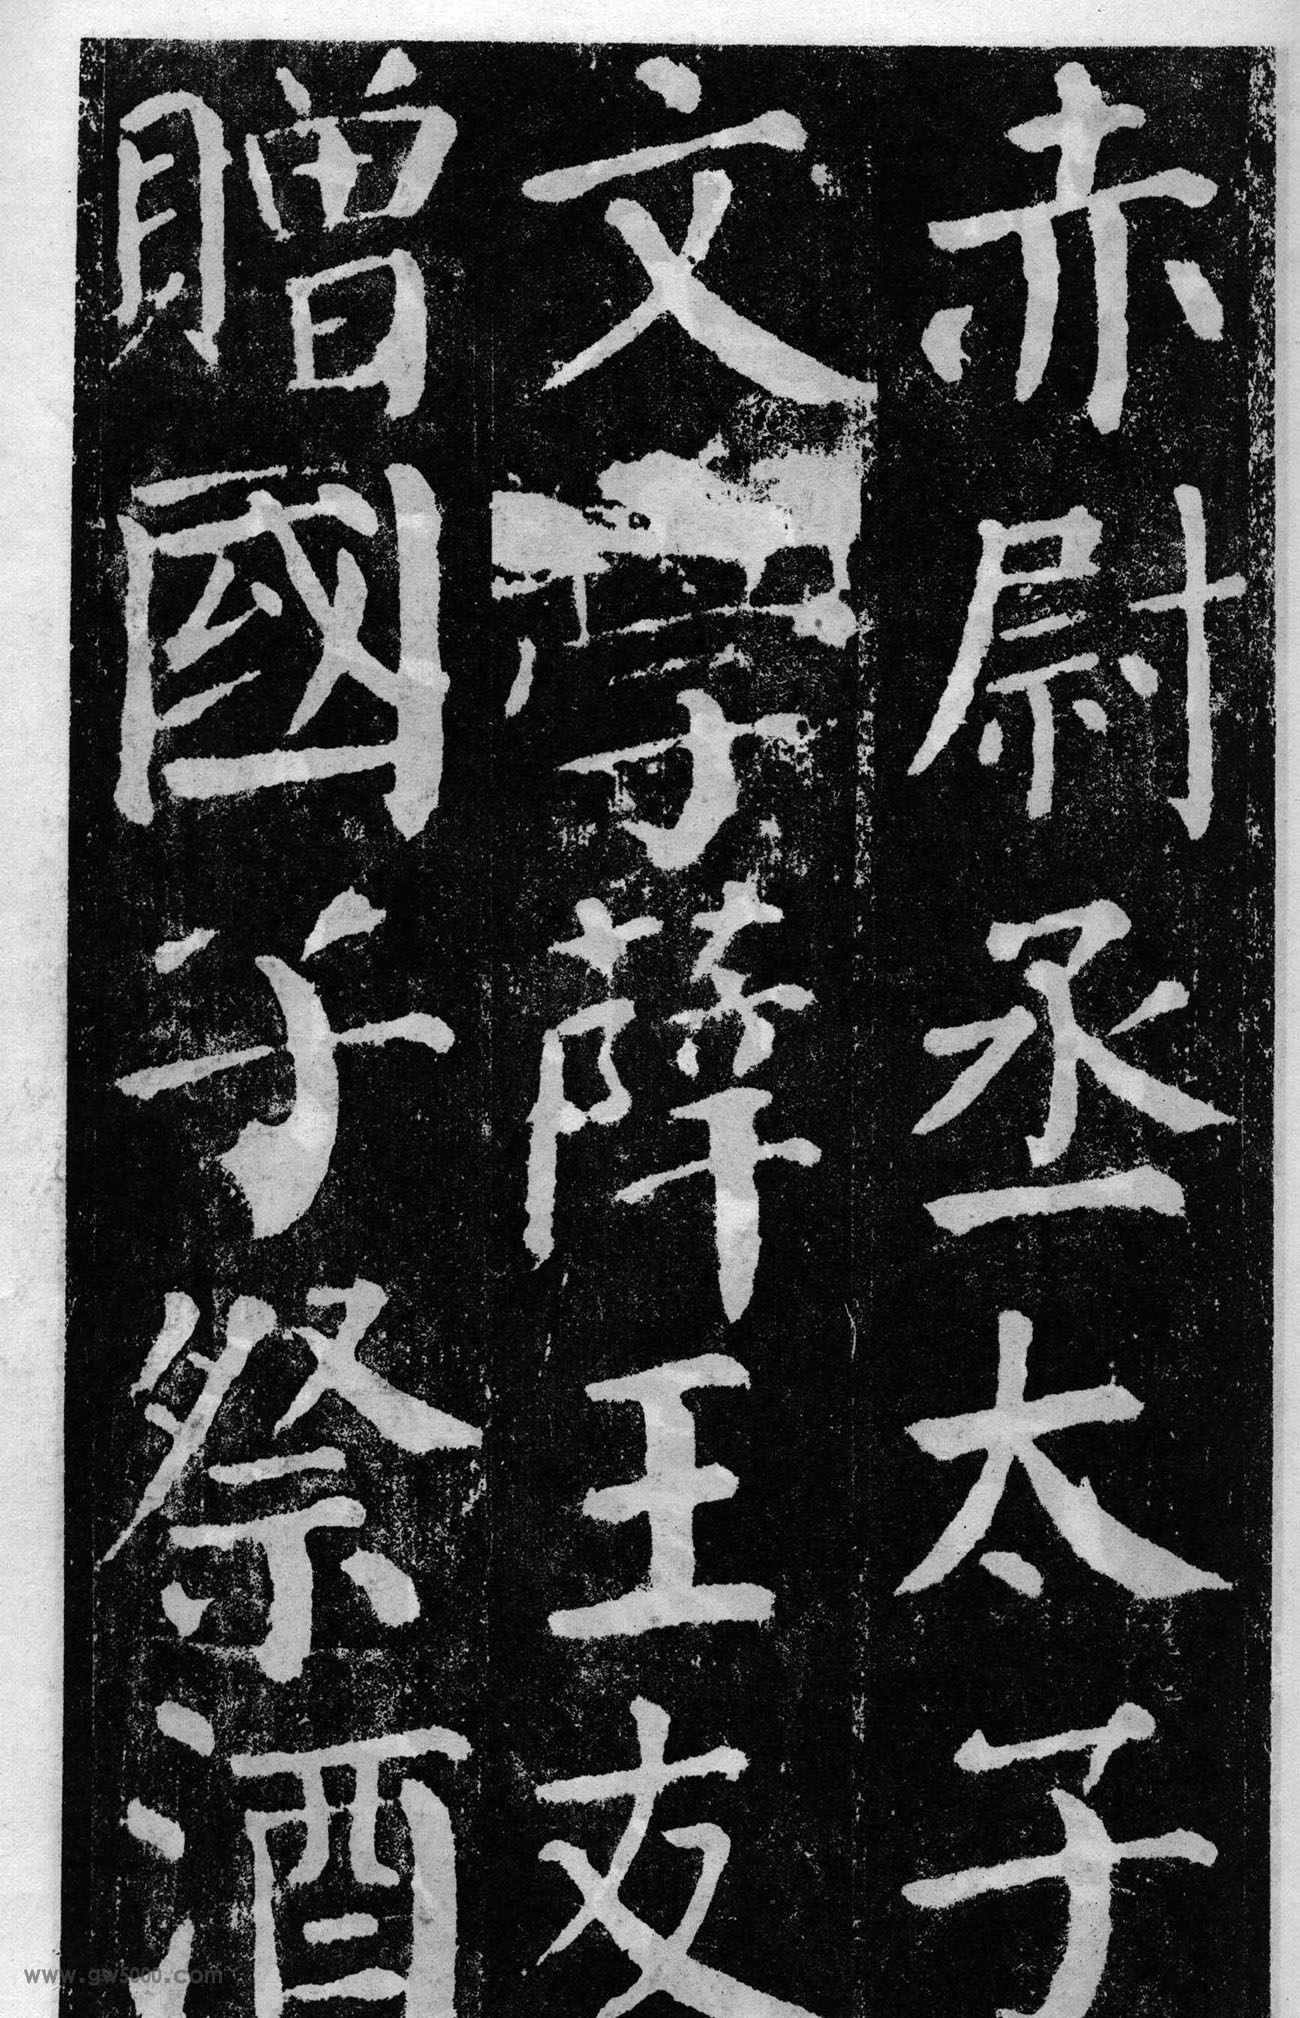 赤尉丞太子
文學薛王友
贈國子祭酒
www.gw5000.com